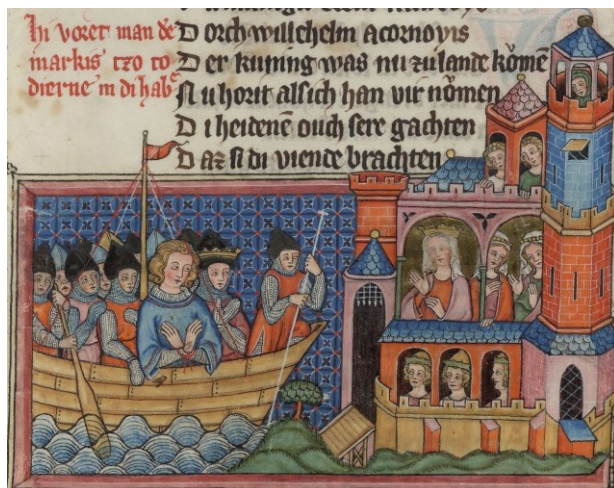 In voret man dē
markis tzo to
dierne in di habᵉ
D orch willehelm acornoyis
D er kuning was nu zulande kömē
N u horit alsich han vir nömen
D i heidenē ouch sere gachten
D az si di viende brachten